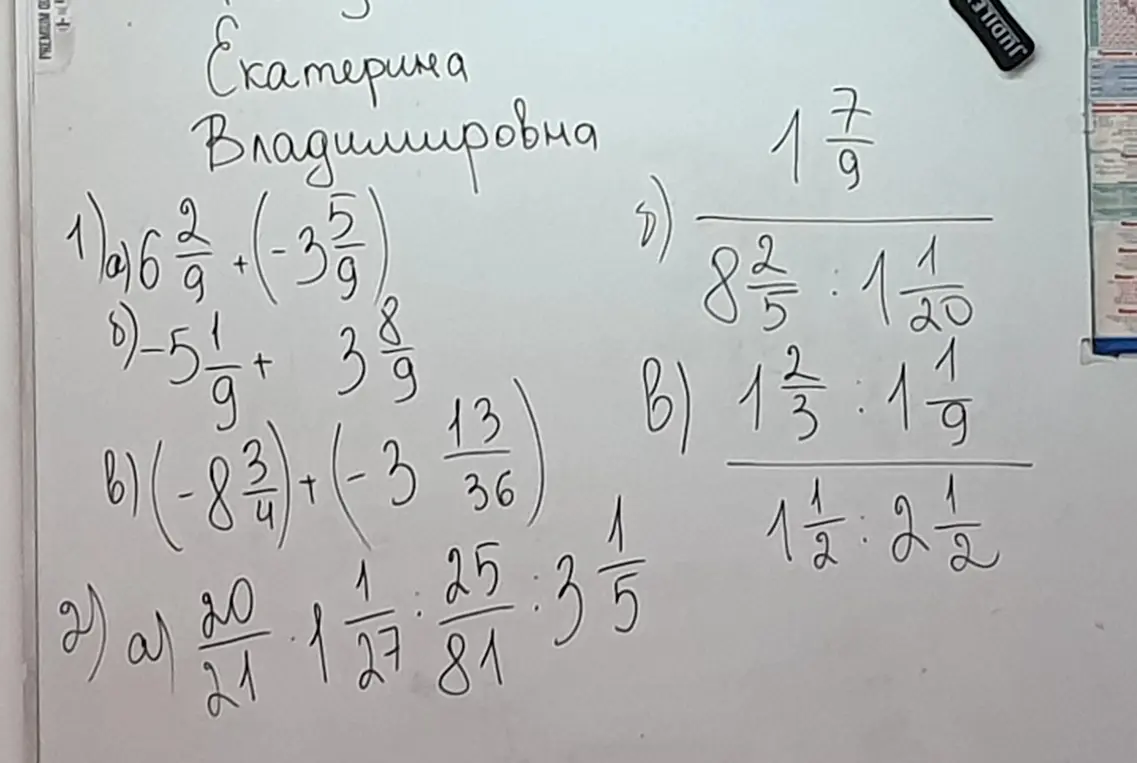 Екатерина
Владимировна
1) а) 6 2/9 + (-3 5/9)
б) -5 1/9 + 3 8/9
в) (-8 3/4) + (-3 13/36)
2) а) 20/21 · 1 1/27 : 25/81 : 3 1/5
б) 1 7/9 / 8 2/5 : 1 1/20
в) 1 2/3 : 1 1/9 / 1 1/2 : 2 1/2
PREMIUM